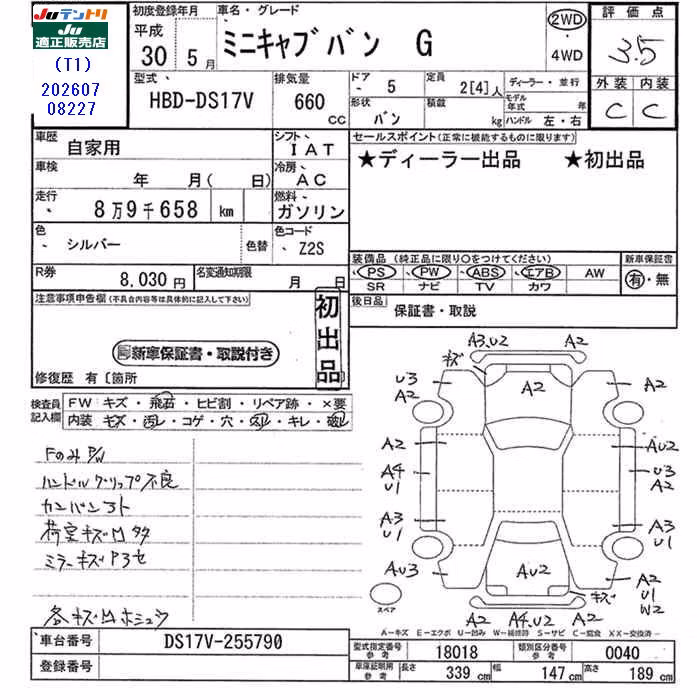 JUテントリ
JU適正販売店
(T1)
202607
08227
初度登録年月
平成
30年 5月
車名・グレード
ミニキャブバン G
2WD
・
4WD
評価点
3.5
外装 内装
C C
型式、
HBD-DS17V
排気量
660
cc
ドア
- 5
定員
2[4]人
形状
バン
積載
kg
ディーラー・並行
モデル年式 年
ハンドル 左・右
車歴
自家用
シフト、
IAT
セールスポイント(正常に機能するものに限ります)
★ディーラー出品 ★初出品
車検
年 月( 日)
冷房、
AC
走行
8万9千658 km
燃料、
ガソリン
色
シルバー
色替
色コード
Z2S
装備品 (純正品に限り○をつけてください)
PS PW ABS エアB AW
SR ナビ TV カワ
新車保証書
有・無
R券
8,030円
名変通知期限
月 日
後日品
保証書・取説
注意事項申告欄(不具合内容等は具体的に記入して下さい)
初出品
新車保証書・取説付き
修復歴 有〔箇所
検査員記入欄
FW キズ・飛石・ヒビ割・リペア跡・×要
内装 キズ・汚レ・コゲ・穴・凹・キレ・破レ
Fのみ P/W
ハンドルグリップ不良
カンバンアト
荷室キズ凹タタ
ミラーキズ P3セ
各キズ凹ホシュウ
A3.U2 A2
キズ
A2
U3
A2
A2
A2
A4
U1
A3
U1
AU3
AU2
U3
A2
A3
U1
AU2
A2
U1
W2
キズ
A2 A4.U2 A2
スペア
A-キズ E-エクボ U-凹み W-補修跡 S-サビ C-腐食 XX-交換済
車台番号
DS17V-255790
登録番号
型式指定番号
参考
18018
類別区分番号
参考
0040
車庫証明用
参考
長さ 339 cm 幅 147 cm 高さ 189 cm